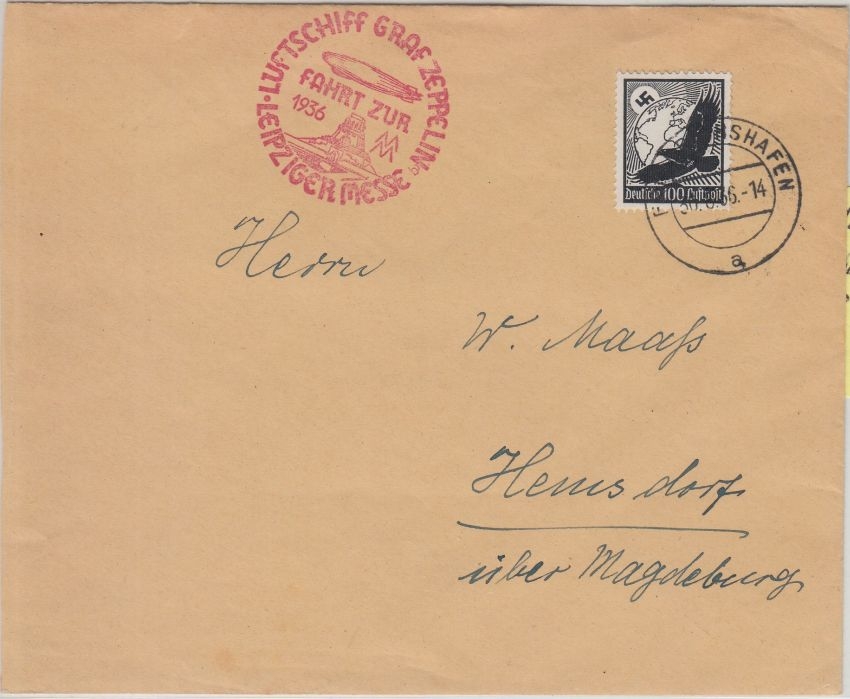 LUFTSCHIFF GRAF ZEPPELIN
FAHRT ZUR
1936
LEIPZIGER MESSE
MM
Deutsche 100 Luftpost
SHAFEN
36.-14
a
Herrn
W. Maaß
Hemsdorf
über Magdeburg